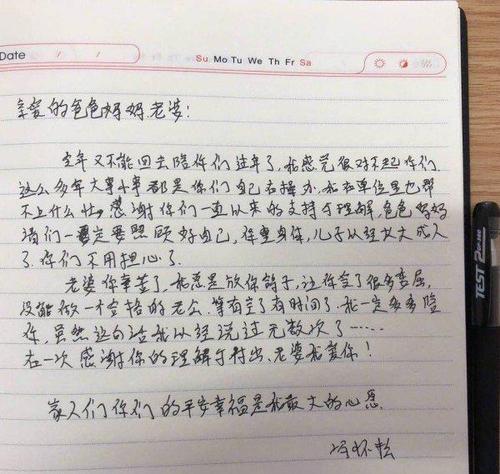 Date / /
Su Mo Tu We Th Fr Sa
亲爱的爸爸妈妈老婆:
去年又不能回去陪你们过年了,我感觉很对不起你们
这么多年大事小事都是你们自己在操办,我在单位里也帮
不上什么忙。感谢你们一直以来的支持与理解,爸爸妈妈
请们一定要照顾好自己,保重身体,儿子以经长大成人
了,你们不用担心了。
老婆你辛苦了,我总是放你鸽子,让你受了很多委屈,
没能做一个合格的老公。等有空了有时间了,我一定多多陪
你,虽然这句话我以经说过无数次了……
在一次感谢你的理解与付出、老婆我爱你!
家人们你们的平安幸福是我最大的心愿
TEST 2